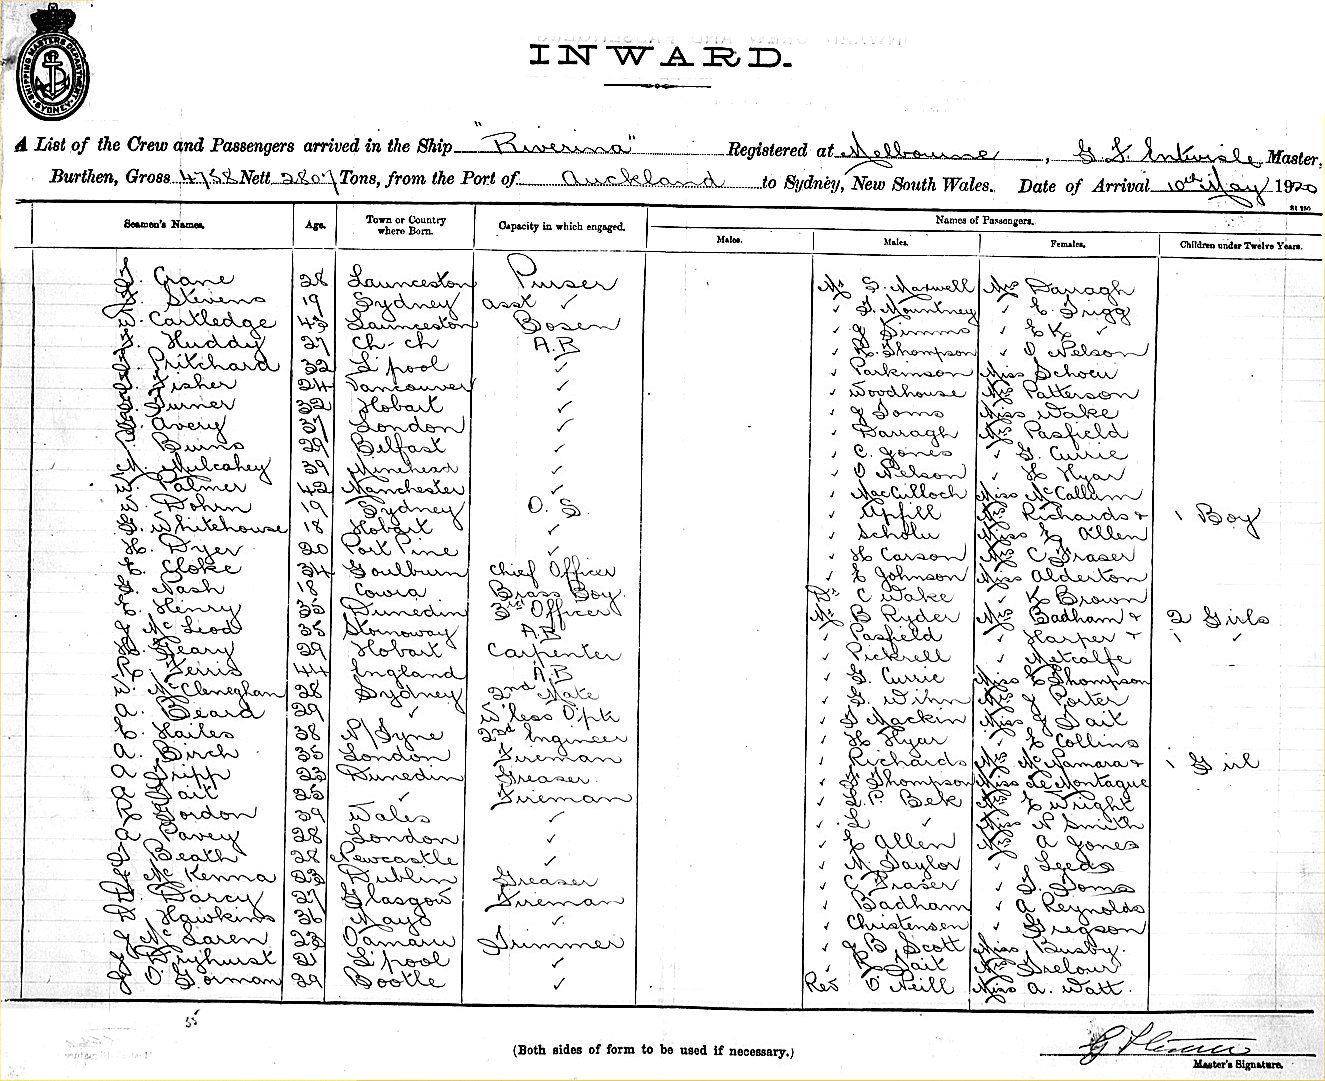 SHIPPING MASTERS DEPARTMENT SYDNEY
INWARD.
A List of the Crew and Passengers arrived in the Ship "Riverina" Registered at Melbourne, Master,
Burthen, Gross 4758 Nett 2807 Tons, from the Port of Auckland to Sydney, New South Wales. Date of Arrival 10th May 1920
Seamen's Names. Age. Town or Country where Born. Capacity in which engaged. Names of Passengers.
Males. Males. Females. Children under Twelve Years.
Crane 28 Launceston Purser Mr S. Maxwell Mrs Darragh
Stevens 19 Sydney asst ✓ ✓ G. Mountney ✓ E Trigg
Cartledge 43 Launceston Bosen ✓ Simms ✓ E K ✓
Huddy 27 Ch-ch A.B ✓ R. Thompson ✓ O Nelson
Pritchard 32 L'pool ✓ ✓ Parkinson Miss Schoeu
Fisher 24 Vancouver ✓ ✓ Woodhouse Mrs Patterson
Turner 32 Hobart ✓ ✓ J Toms Miss Wake
Avery 37 London ✓ ✓ Darragh Mrs Pasfield
Binns 29 Belfast ✓ ✓ C. Jones ✓ G. Currie
Mulcahey 39 Minehead ✓ ✓ O Nelson ✓ L Hyar
Palmer 42 Manchester ✓ ✓ MacCulloch Miss McCallum
Dohrn 19 Sydney O.S. ✓ Upfill Mrs Richards + 1 Boy
Whitehouse 18 Hobart ✓ ✓ Scholu Miss Allen
H. Dyer 20 Port Pirie ✓ ✓ H Carson Mrs C Fraser
Cloke 34 Goulburn Chief Officer ✓ L Johnson Miss Alderton
Nash 18 Cowra Brass Boy Dr C Wake ✓ K Brown
Henry 35 Dunedin 3rd Officer Mr B Ryder Mrs Badham + 2 Girls
McLeod 35 Stornoway A.B ✓ Pasfield ✓ Harper + 1 ✓
Geary 29 Hobart Carpenter ✓ Pickrell ✓ Metcalfe
Ferris 44 England A.B ✓ G. Currie Miss E Thompson
McCleneghan 28 Sydney 2nd Mate ✓ G. Winn Mrs J Porter
Beard 29 ✓ W'less Optr ✓ G Mackin Miss J Tait
Hailes 38 N/Tyne 2nd Engineer ✓ L Hyar ✓ L Collins
Birch 35 London Fireman ✓ Richards Mrs McNamara + 1 Girl
Tripp 23 Dunedin Greaser ✓ Thompson Miss de Montague
Tait 25 ✓ Fireman ✓ P. Bek Mrs L Wright
Gordon 39 Wales ✓ ✓ ✓ N Smith
Pavey 28 London ✓ ✓ Allen Mrs A Jones
McBeath 28 Newcastle ✓ ✓ N. Taylor ✓ Leeds
McKenna 23 Dublin Greaser ✓ C Fraser ✓ G. Toms
Darcy 27 Glasgow Fireman ✓ Badham ✓ A Reynolds
Hawkins 36 Mayo ✓ ✓ Christensen ✓ Gregson
McLaren 23 Oamaru Trimmer ✓ J B Scott Miss Busby
Gryhurst 21 L'pool ✓ ✓ Tait Mrs Trelour
Gorman 39 Bootle ✓ Rev O'Neill Miss A. Watt.
55
(Both sides of form to be used if necessary.)
Master's Signature.